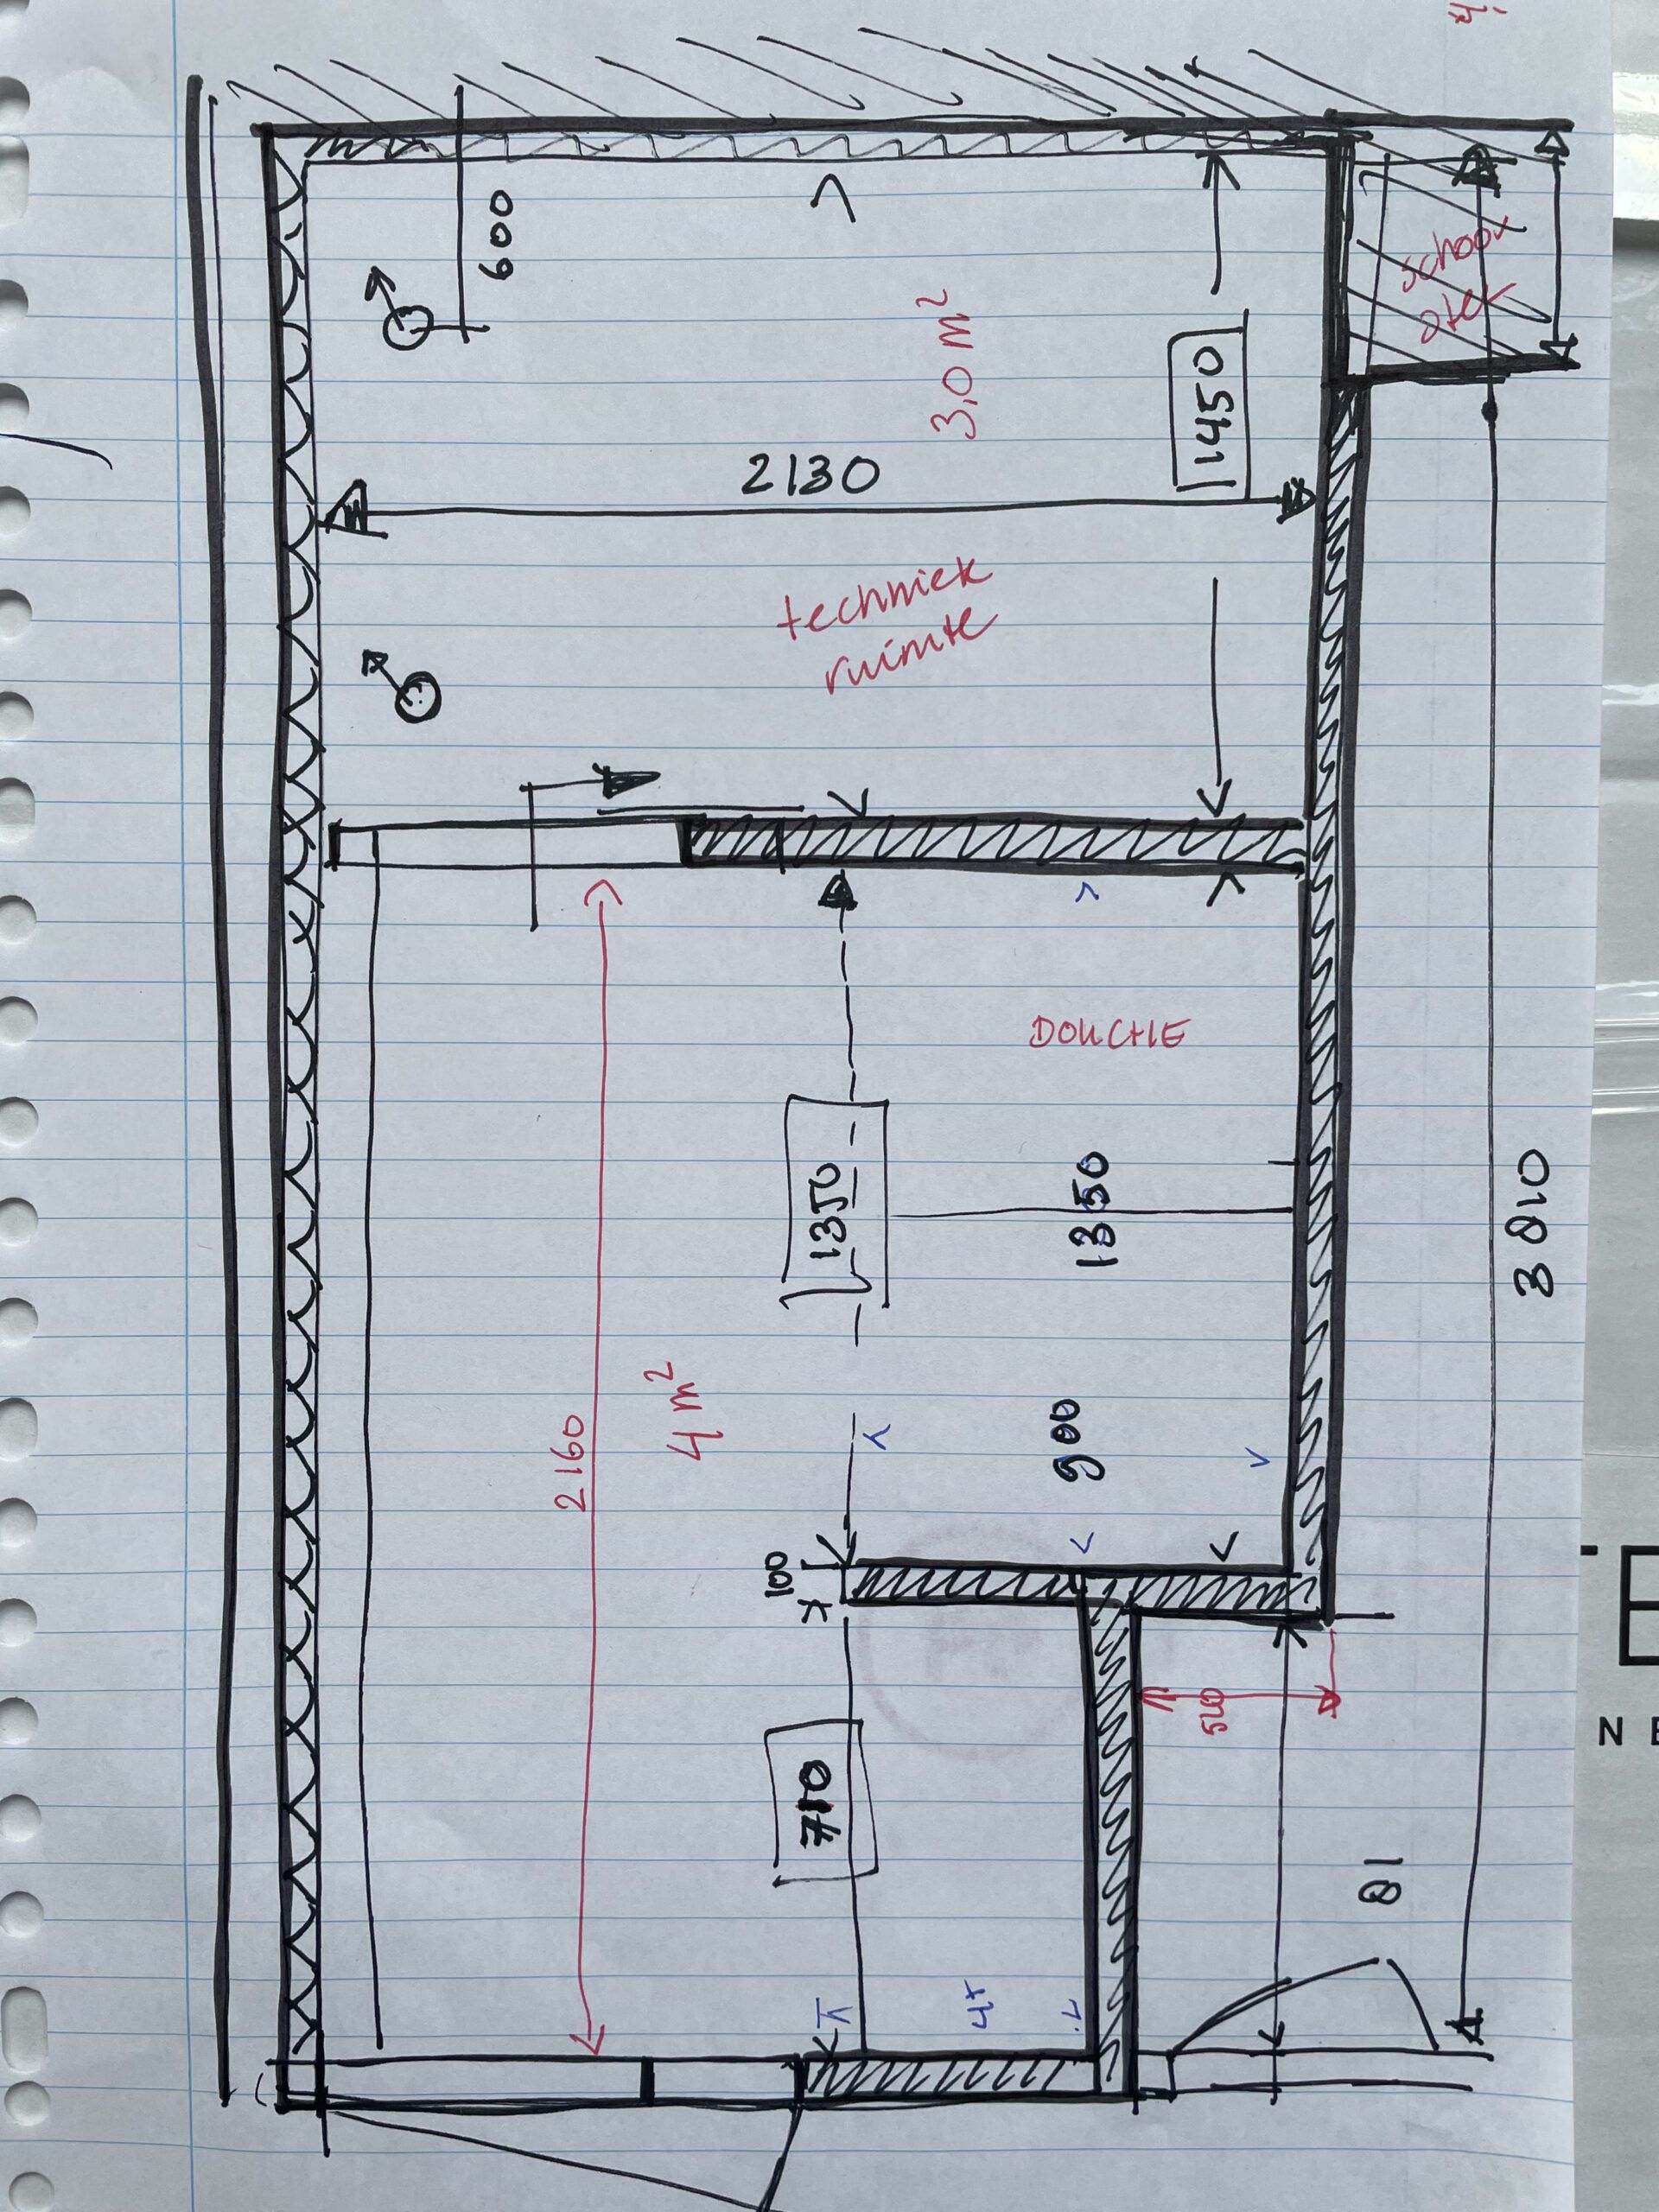 600
3,0 m²
schoor
steen
1450
2130
techniek
ruimte
DOUCHE
1350
1350
3810
2160
4 m²
900
100
710
510
81